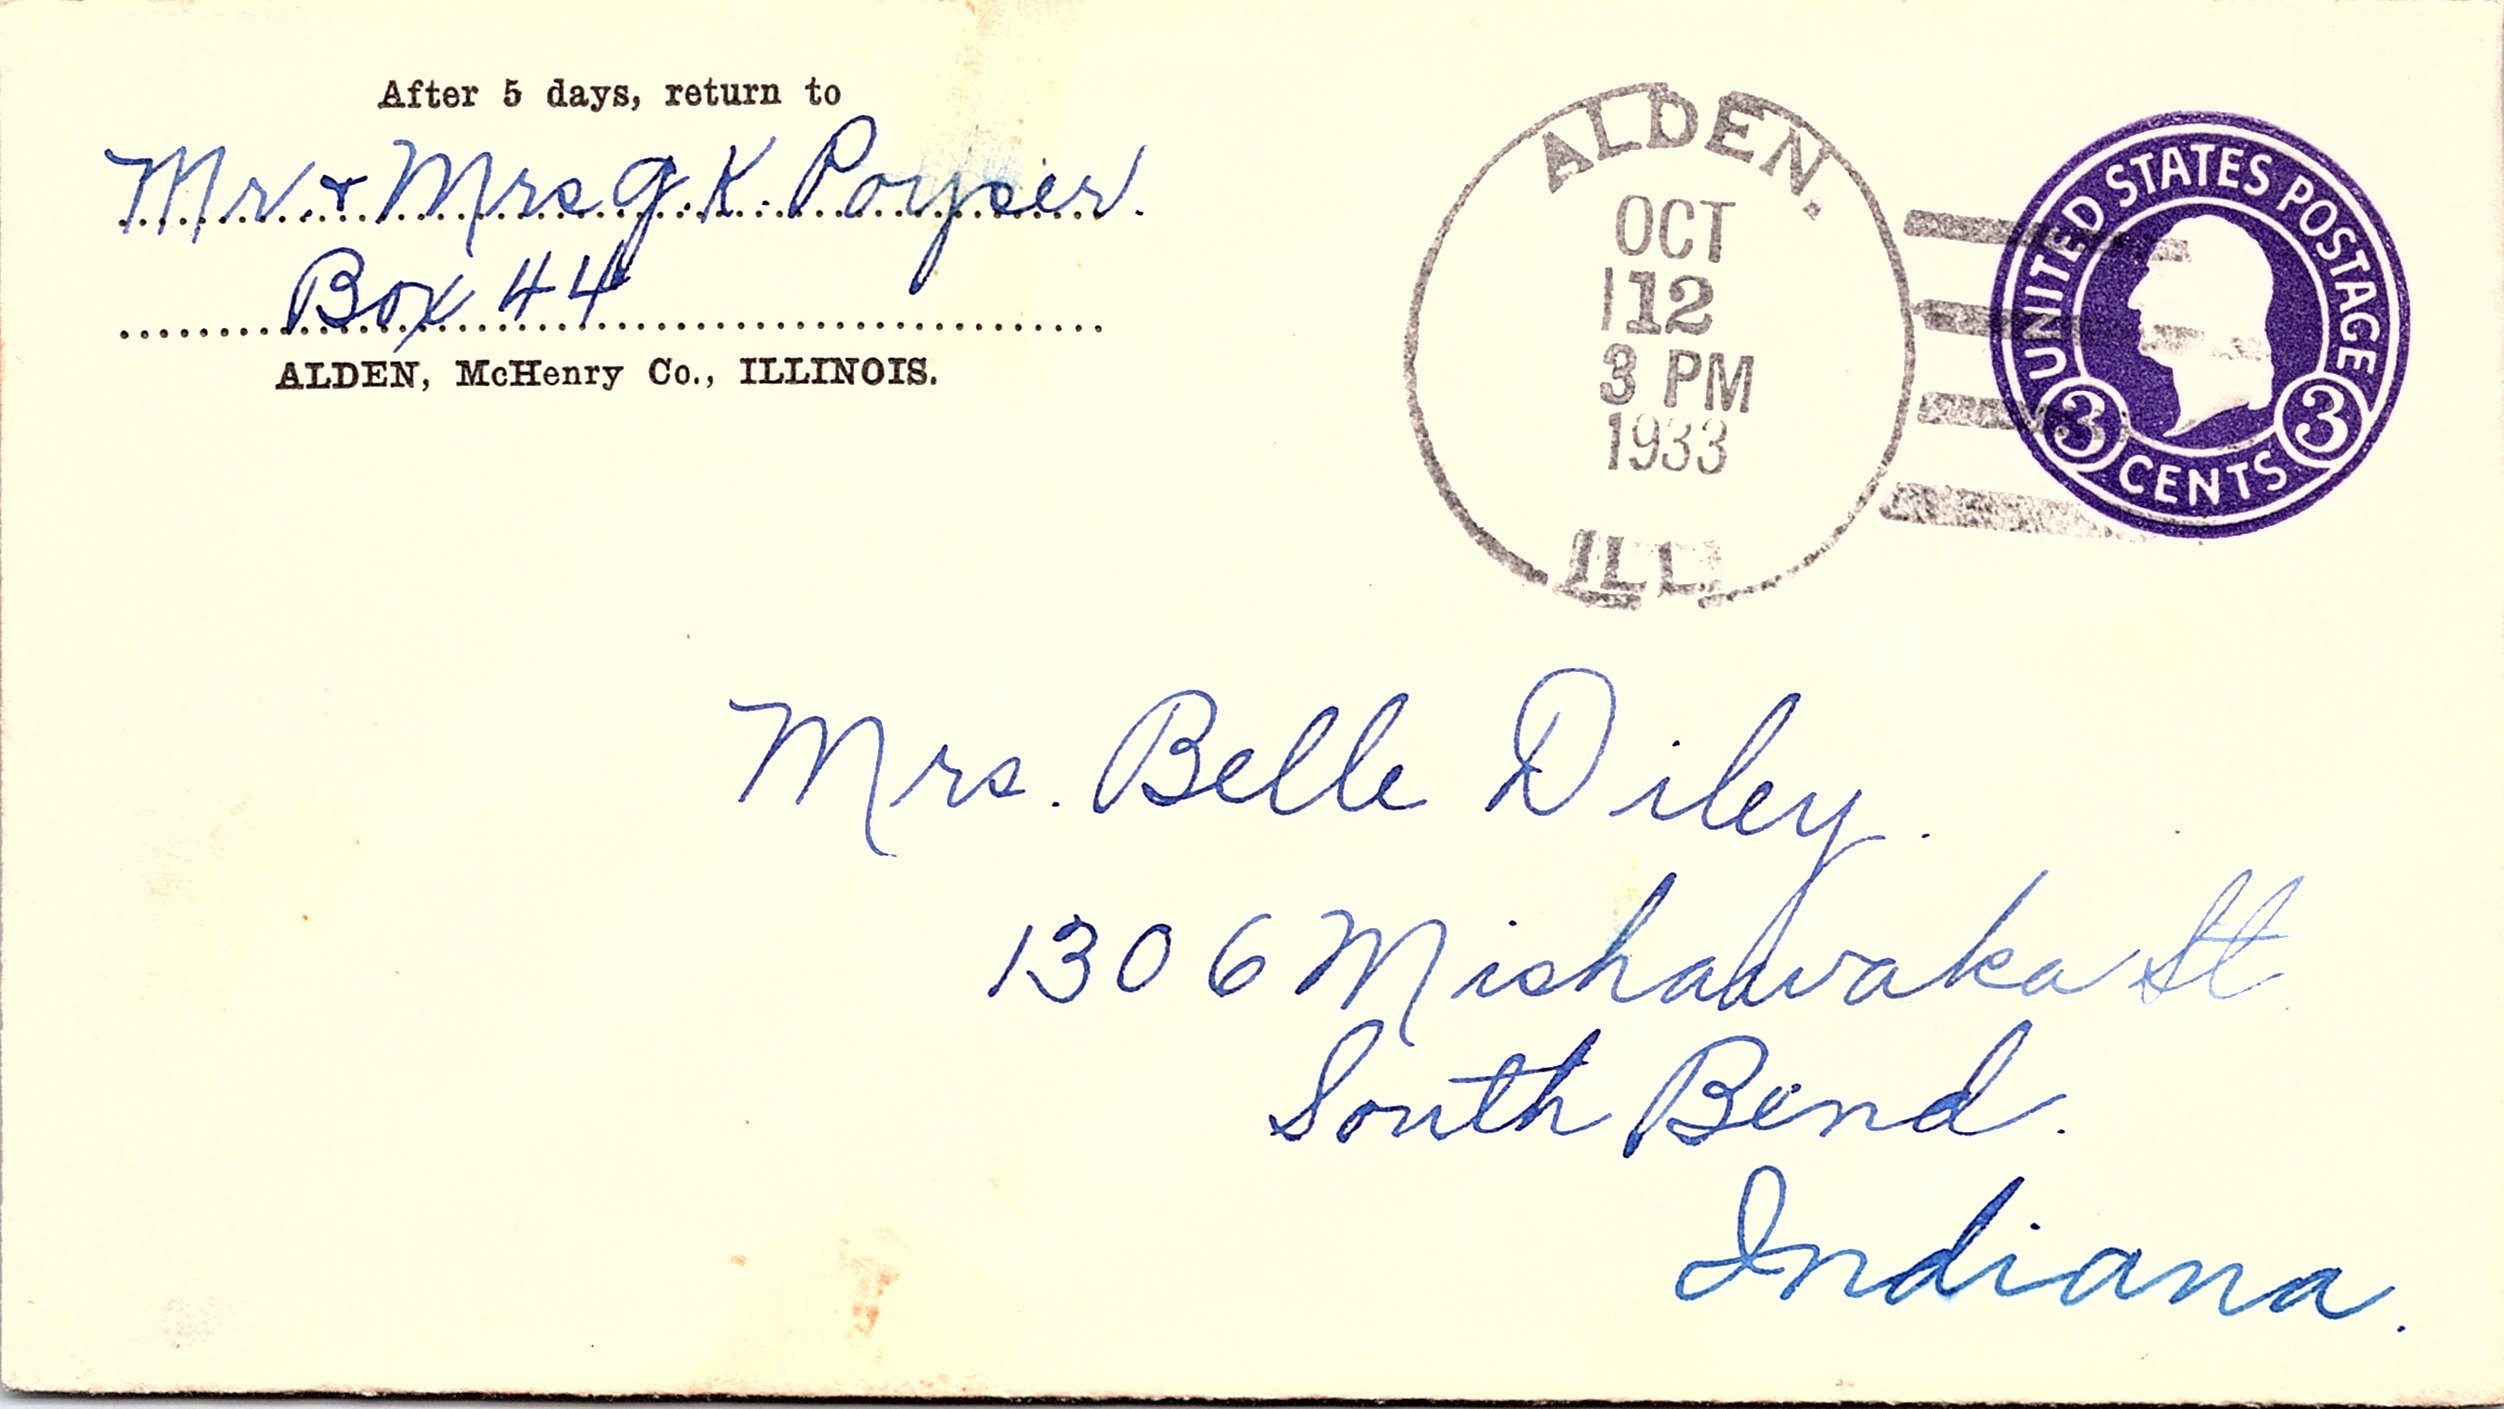 After 5 days, return to
Mr. & Mrs G. K. Poyser.
Box 44
ALDEN, McHenry Co., ILLINOIS.
ALDEN.
OCT
12
3 PM
1933
ILL.
UNITED STATES POSTAGE
3 CENTS 3
Mrs. Belle Diley.
1306 Mishawaka St.
South Bend.
Indiana.